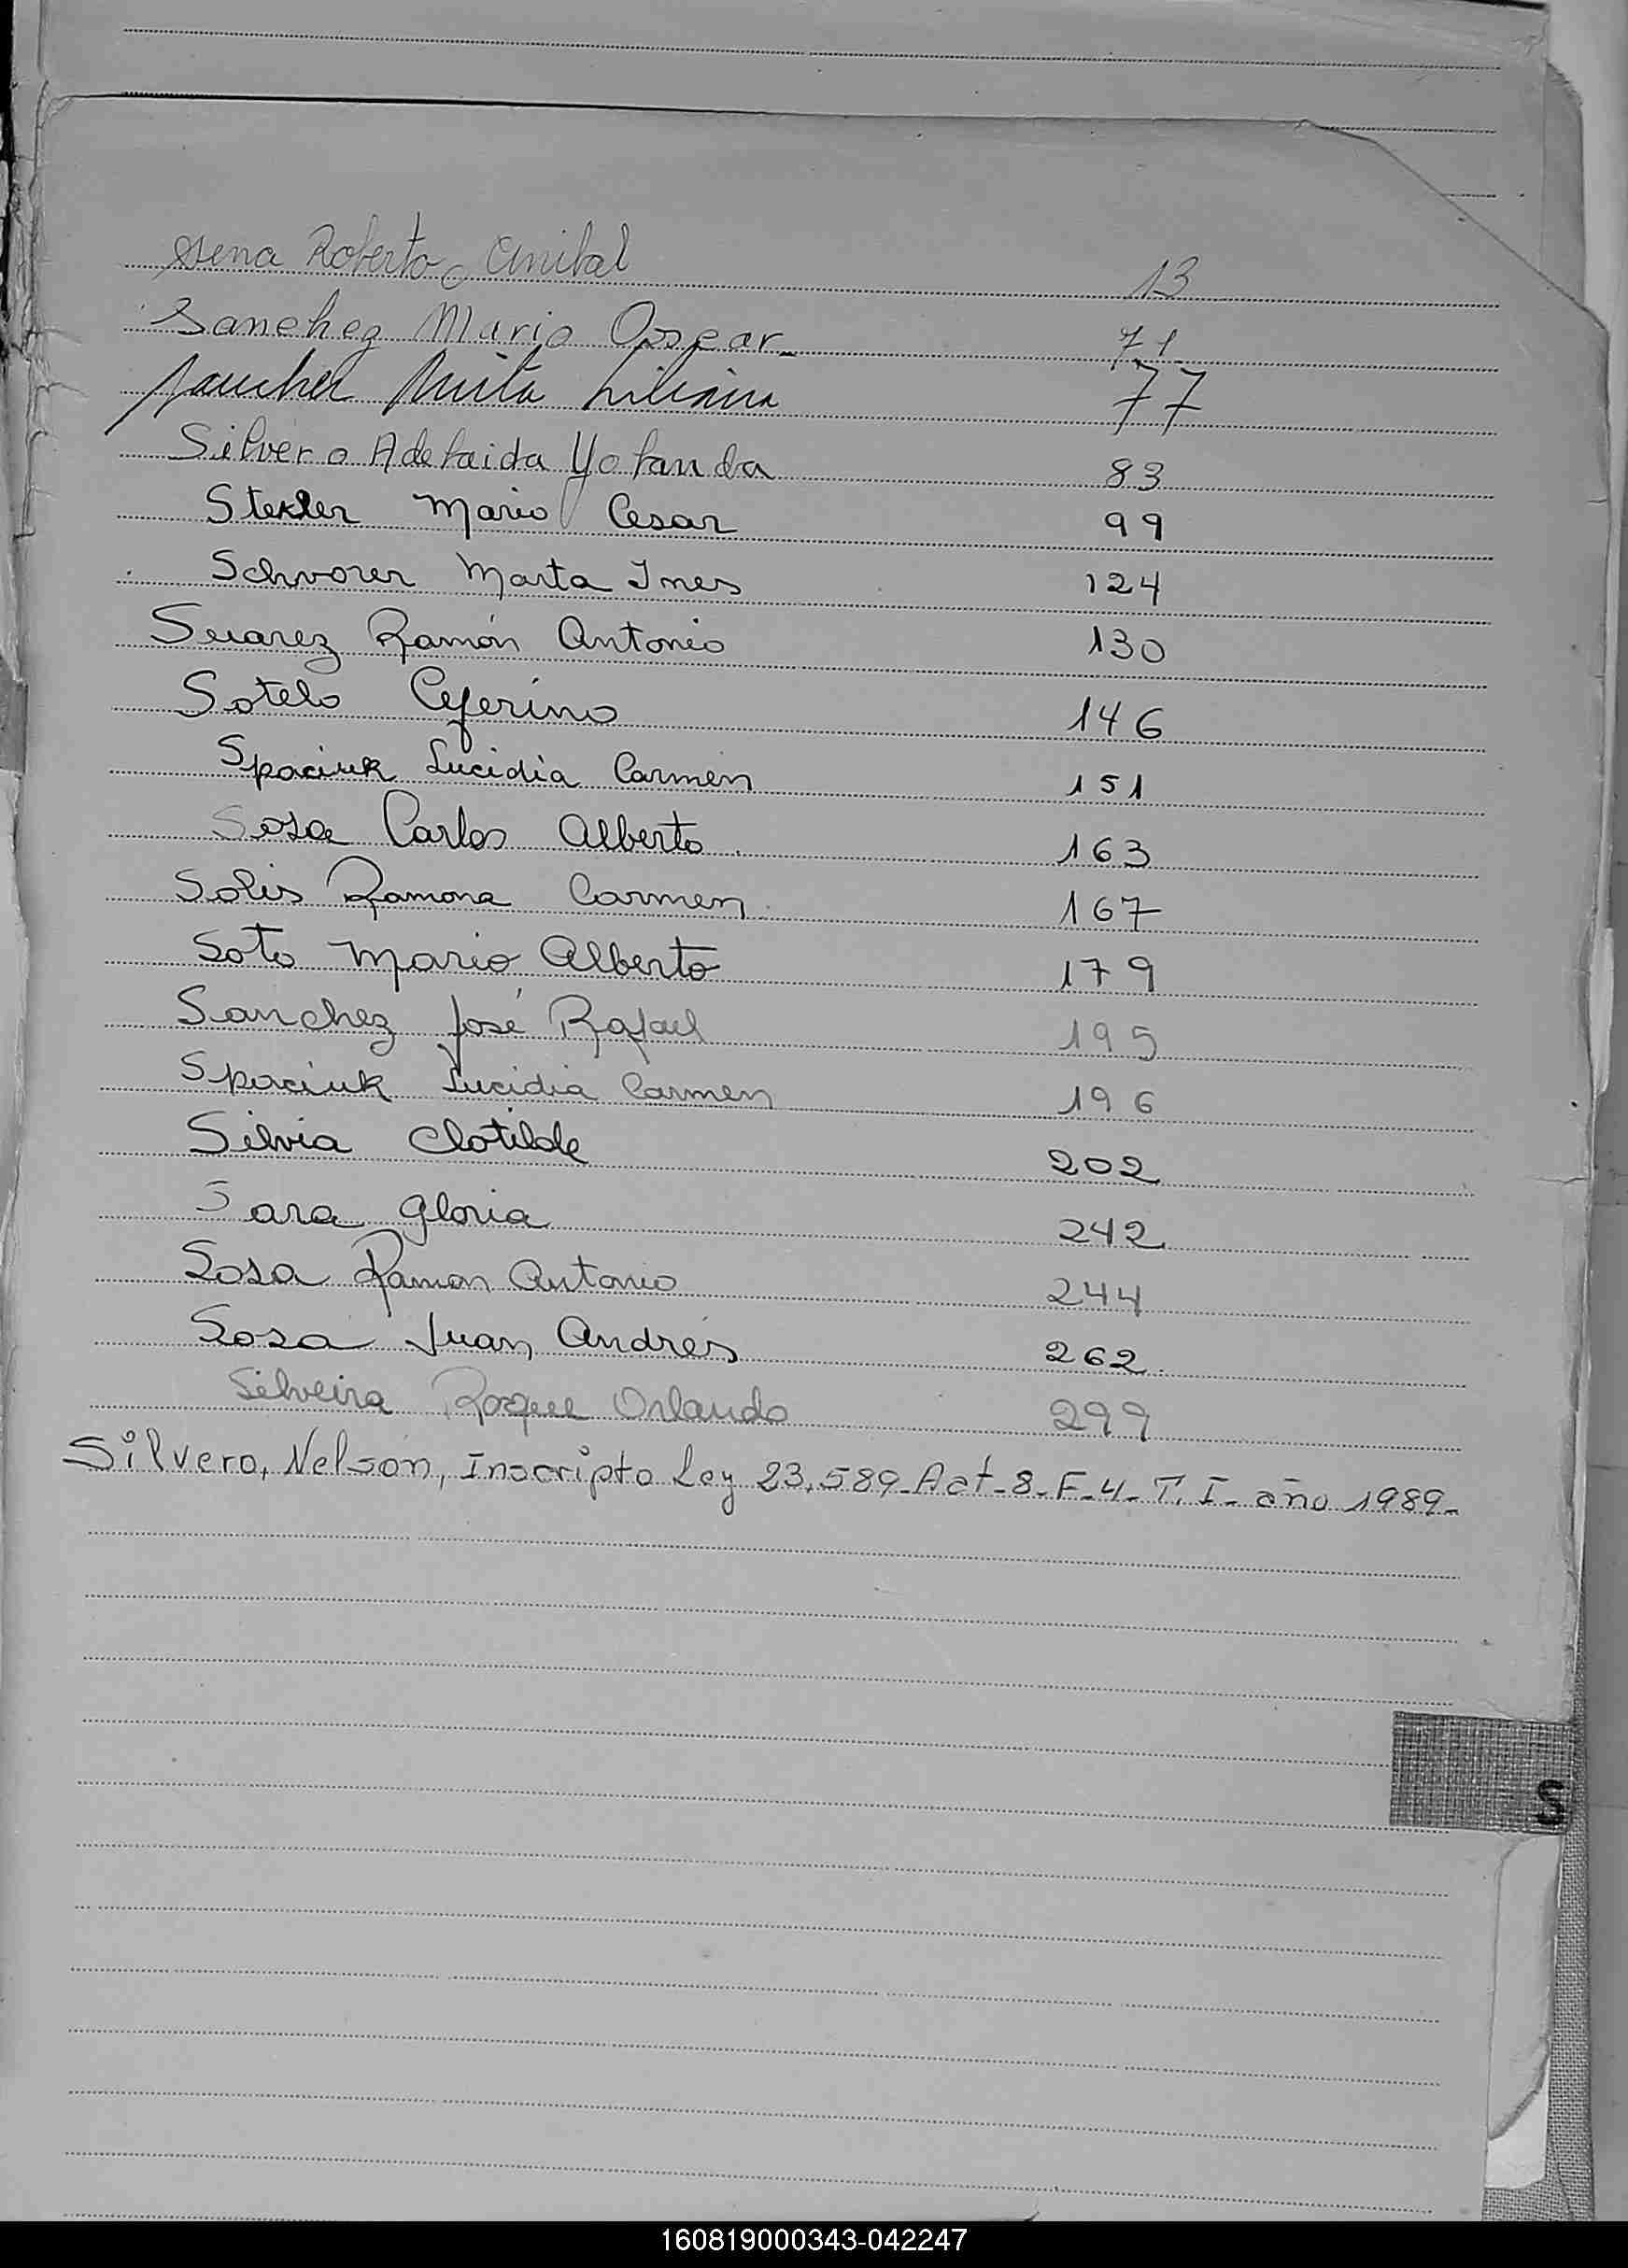 Sena Roberto Anibal 13
Sanchez Mario Oscar 71
Sanchez Mirta Liliana 77
Silvero Adelaida Yolanda 83
Stekler Mario Cesar 99
Schvorer Marta Ines 124
Suarez Ramón Antonio 130
Sotelo Ceferino 146
Spaciuk Lucidia Carmen 151
Sosa Carlos Alberto 163
Solis Ramona Carmen 167
Soto Mario Alberto 179
Sanchez José Rafael 195
Spaciuk Lucidia Carmen 196
Silvia Clotilde 202
Sara Gloria 242
Sosa Ramon Antonio 244
Sosa Juan Andrés 262
Silveira Roque Orlando 299
Silvero, Nelson, Inscripto Ley 23.589-Act-8-F-4-T. I- año 1989-
S
160819000343-042247